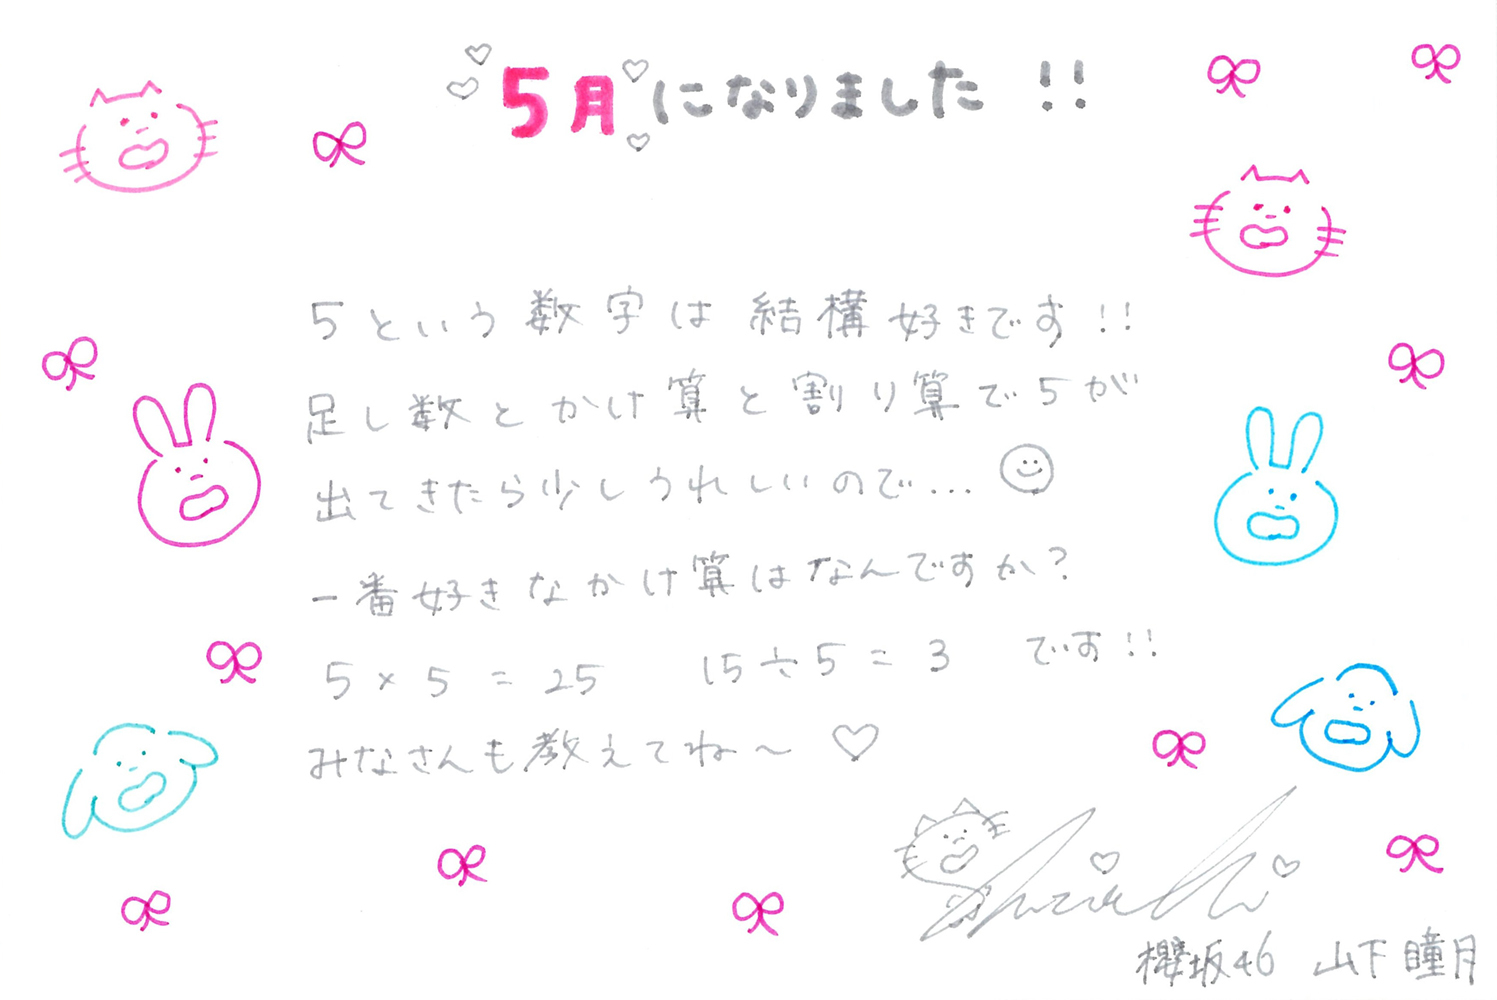 5月になりました!!
5という数字は結構好きです!!
足し数とかけ算と割り算で5が
出てきたら少しうれしいので...
一番好きなかけ算はなんですか?
5×5=25 15÷5=3 です!!
みなさんも教えてね〜♡
櫻坂46 山下瞳月